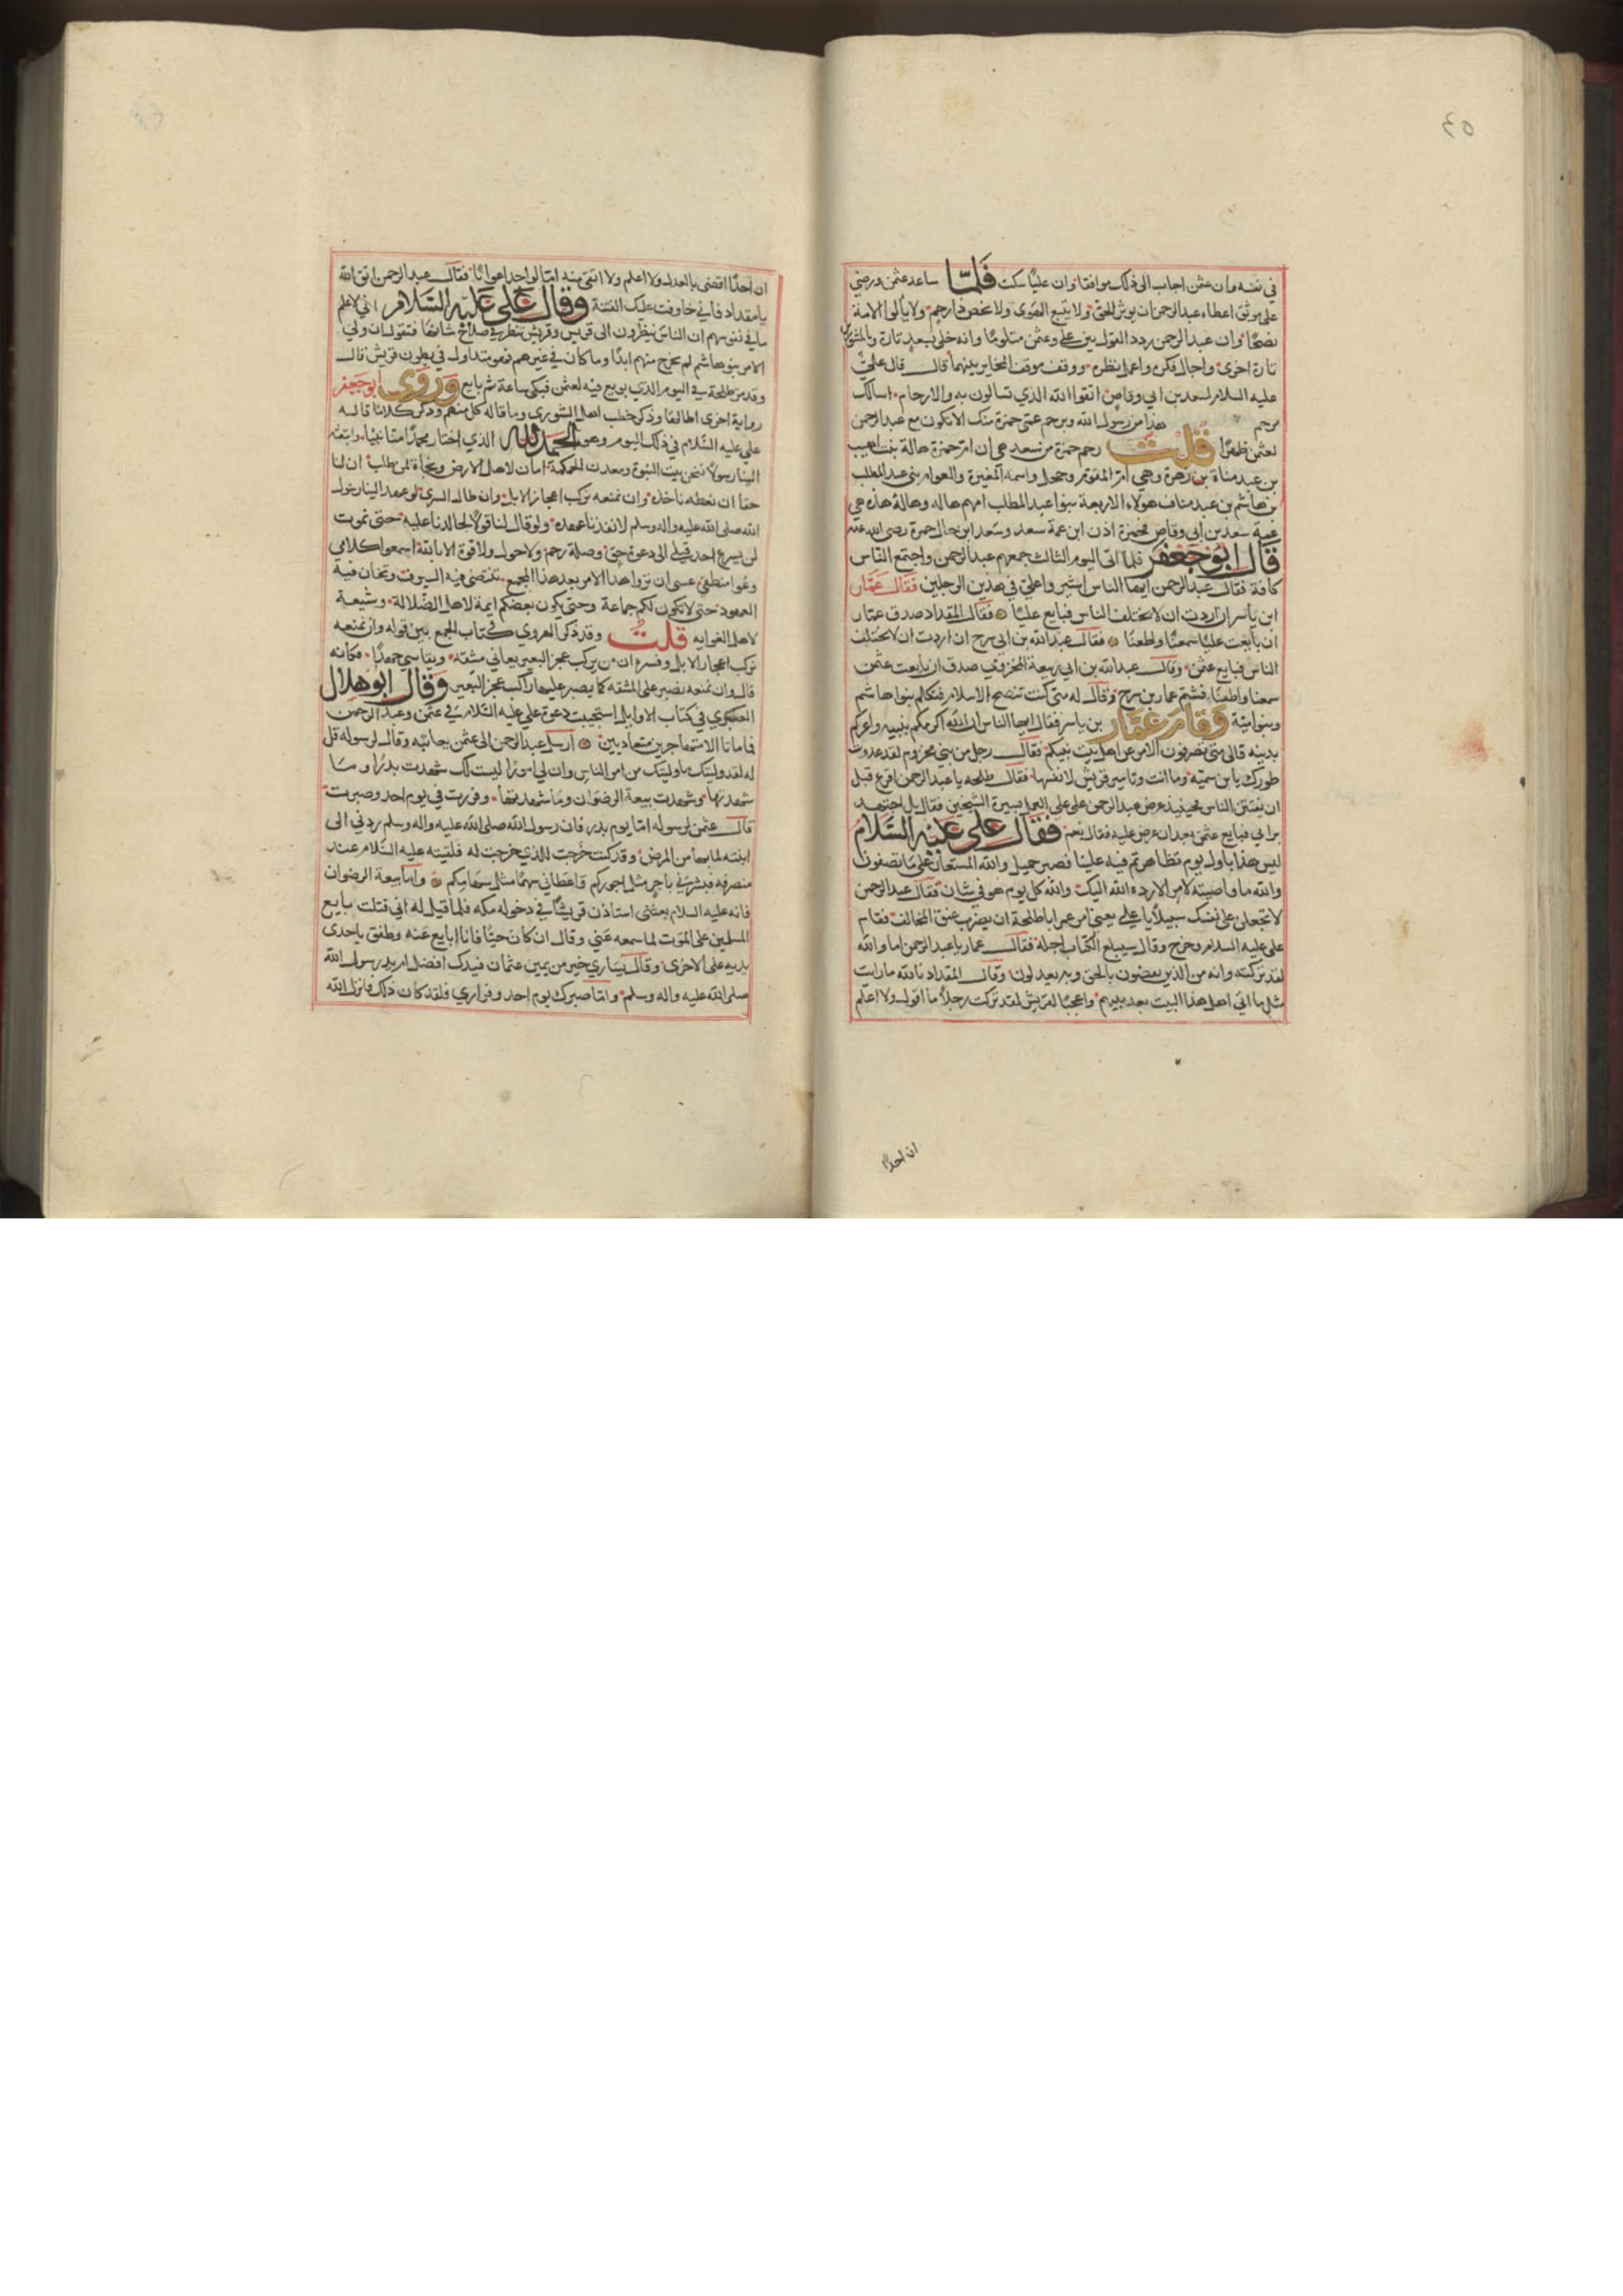 ٤٥
في نفسه وان عثمن اجاب الى ذلك موافقا وان عليا سكت فلما ساعد عثمن ورضي
على موثق اعطاه عبد الرحمن ان يوثر الحق ولا يتبع الهوى ولا يخص ذا رحم ولا يالوا الامة
نصحا وان عبد الرحمن ردد القول بين علي وعثمن متلوما وانه خلى بسعد تارة وبالمسور
تارة اخرى واجال فكره واعمل نظره ووقف موقف الحاير بينهما قال قال علي
عليه السلام لسعد بن ابي وقاص اتقوا الله الذي تسالون به والارحام اسالك
برحم هذا من رسول الله وبرحم عمي حمزة منك الا تكون مع عبد الرحمن
لعثمن ظهيرا قلت رحم حمزة من سعد هي ان ام حمزة هالة بنت اهيب
بن عبد مناة بن زهرة وهي ام المقوم وحجل واسمه المغيرة والعوام بني عبد المطلب
بن هاشم بن عبد مناف هولاء الاربعة بنوا عبد المطلب امهم هاله وهالة هذه هي
عمة سعد بن ابي وقاص فحمزة اذن ابن عمة سعد وسعد ابن خال حمزة رضي الله عنه
قال ابو جعفر فلما اتى اليوم الثالث جمعهم عبد الرحمن واجتمع الناس
كافة فقال عبد الرحمن ايها الناس اشيروا علي في هذين الرجلين فقال عمار
ابن ياسر ان اردت ان لا يختلف الناس فبايع عليا فقال المقداد صدق عمار
ان بايعت عليا سمعنا واطعنا فقال عبد الله بن ابي سرح ان اردت ان لا تختلف
الناس فبايع عثمن وقال عبد الله بن ابي ربيعة المخزومي صدق ان بايعت عثمن
سمعنا واطعنا فشتم عمار بن سرح وقال له متى كنت تنصح الاسلام فتكلم بنوا هاشم
وبنوامية وقام عمار بن ياسر فقال ايها الناس ان الله اكرمكم بنبيه واعزكم
بدينه فالى متى تصرفون الامر عن اهل بيت نبيكم فقال رجل من بني مخزوم لقد عدوت
طورك يابن سمية وما انت وتامير قريش لانفسها فقال طلحه يا عبد الرحمن افرغ قبل
ان يفتتن الناس فحينيذ عرض عبد الرحمن على علي العمل بسيرة الشيخين فقال بل اجتهد
برايي فبايع عثمن بعد ان عرض عليه فقال نعم فقال علي عليه السلام
ليس هذا باول يوم تظاهرتم فيه علينا فصبر جميل والله المستعان على ما تصفون
والله ما وليته الامر الا ليرده الله اليك والله كل يوم هو في شان فقال عبد الرحمن
لا تجعلن على نفسك سبيلا يا علي يعني امر عمر اباطلحة ان يضرب عنق المخالف فقام
علي عليه السلام وخرج وقال سيبلغ الكتاب اجله فقال عمار يا عبد الرحمن اما والله
لقد تركته وانه من الذين يقضون بالحق وبه يعدلون وقال المقداد تالله ما رايت
مثل ما اتى اهل هذا البيت بعد نبيهم واعجبا لقريش لقد تركت رجلا ما اقول ولا اعلم
ان احدا
ان احدا اقضى بالعدل ولا اعلم ولا اتقى منه اما لو اجد اعوانا فقال عبد الرحمن اتق الله
يا مقداد فاني خايف عليك الفتنة وقال علي عليه السلام اني لاعلم
ما في نفوسهم ان الناس ينظرون الى قريش وقريش تنظر في صلاح شانها فتقول ان ولي
الامر بنو هاشم لم يخرج منهم ابدا وما كان في غيرهم فهو متداول في بطون قريش قال
وقدم طلحة في اليوم الذي بويع فيه لعثمن فتلكى ساعة ثم بايع وروى ابو جعفر
رواية اخرى اطالها وذكر خطب اهل الشورى وما قاله كل منهم وذكر كلاما قاله
علي عليه السلام في ذلك اليوم وهو الحمد لله الذي اختار محمدا منا نبيا وابتعثه
الينا رسولا فنحن بيت النبوة ومعدن الحكمة امان لاهل الارض ونجاة لمن طلب ان لنا
حقا ان نعطه ناخذه وان نمنعه نركب اعجاز الابل وان طال السرى لو عهد الينا رسول
الله صلى الله عليه واله وسلم لانفذنا عهده ولو قال لنا قولا لجالدنا عليه حتى نموت
لن يسرع احد قبلي الى دعوة حق وصلة رحم ولا حول ولا قوة الا بالله اسمعوا كلامي
وعوا منطقي عسى ان تروا هذا الامر بعد هذا الجمع تنتضى فيه السيوف وتخان فيه
العهود حتى لا تكون لكم جماعة وحتى يكون بعضكم ايمة لاهل الضلالة وشيعة
لاهل الغوايه قلت وقد ذكر الهروي في كتاب الجمع بين قوله وان نمنعه
نركب اعجاز الابل وفسره ان من يركب عجز البعير يعاني مشقة ويقاسي جهدا فكانه
قال وان نمنعه نصبر على المشقه كما يصبر عليها راكب عجز البعير وقال ابو هلال
العسكري في كتاب الاوايل استجيبت دعوة علي عليه السلام في عثمن وعبد الرحمن
فما ماتا الا متهاجرين متعاديين ارسل عبد الرحمن الى عثمن يعاتبه وقال لرسوله قل
له لقد وليتك ما وليتك من امر الناس وان لي امورا ليست لك شهدت بدرا وما
شهدتها وشهدت بيعة الرضوان وما شهدتها وفررت في يوم احد وصبرت
قال عثمن لرسوله اما يوم بدر فان رسول الله صلى الله عليه واله وسلم ردني الى
ابنته لما بها من المرض وقد كنت خرجت للذي خرجت له فلقيته عليه السلام عند
منصرفه فبشرني باجر مثل اجوركم واعطاني سهما مثل سهامكم واما بيعة الرضوان
فانه عليه السلام بعثني استاذن قريشا في دخوله مكه فلما قيل له اني قتلت بايع
المسلمين على الموت لما سمعه عني وقال ان كان حيا فانا ابايع عنه وصفق باحدى
يديه على الاخرى وقال يساري خير من يمين عثمان فيدك افضل ام يد رسول الله
صلى الله عليه واله وسلم واما صبرك يوم احد وفراري فلقد كان ذلك فانزل الله